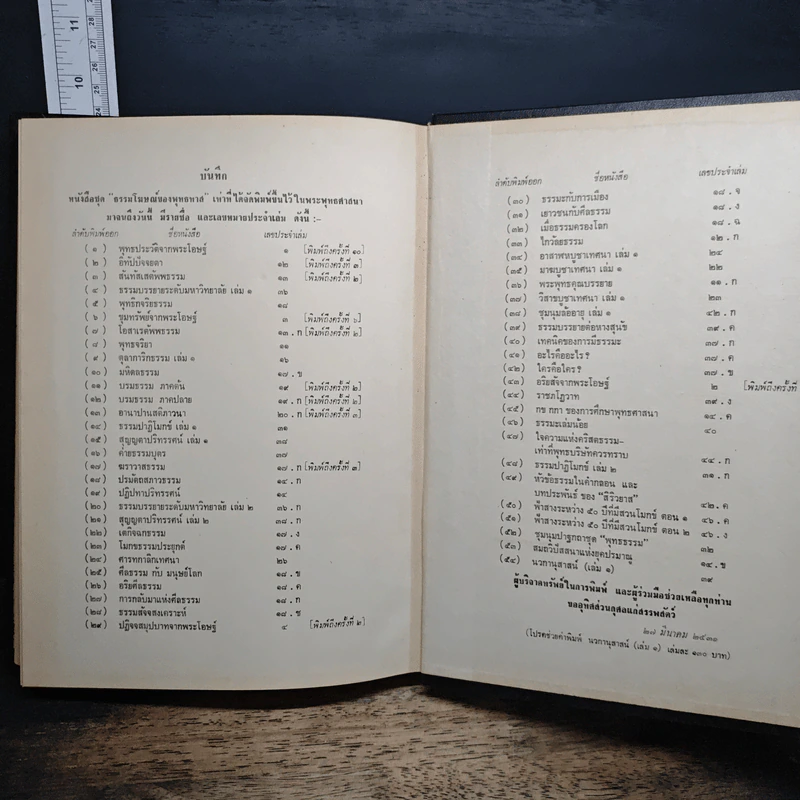 บันทึก
หนังสือชุด "ธรรมโฆษณ์ของพุทธทาส" เท่าที่ได้จัดพิมพ์ขึ้นไว้ในพระพุทธศาสนา
มาจนถึงวันนี้ มีรายชื่อ และเลขหมายประจำเล่ม ดังนี้ :-
ลำดับพิมพ์ออก ชื่อหนังสือ เลขประจำเล่ม
(๑) พุทธประวัติจากพระโอษฐ์ ๑ [พิมพ์ถึงครั้งที่ ๑๐]
(๒) อิทัปปัจจยตา ๑๒ [พิมพ์ถึงครั้งที่ ๓]
(๓) สันทัสเสตัพพธรรม ๑๓ [พิมพ์ถึงครั้งที่ ๒]
(๔) ธรรมบรรยายระดับมหาวิทยาลัย เล่ม ๑ ๓๖
(๕) พุทธิกจริยธรรม ๑๘
(๖) ขุมทรัพย์จากพระโอษฐ์ ๓ [พิมพ์ถึงครั้งที่ ๖]
(๗) โอสาเรตัพพธรรม ๑๓.ก [พิมพ์ถึงครั้งที่ ๒]
(๘) พุทธจริยา ๑๑
(๙) ตุลาการิกธรรม เล่ม ๑ ๑๖
(๑๐) มหิดลธรรม ๑๗.ข
(๑๑) บรมธรรม ภาคต้น ๑๙ [พิมพ์ถึงครั้งที่ ๒]
(๑๒) บรมธรรม ภาคปลาย ๑๙.ก [พิมพ์ถึงครั้งที่ ๒]
(๑๓) อานาปานสติภาวนา ๒๐.ก [พิมพ์ถึงครั้งที่ ๓]
(๑๔) ธรรมปาฏิโมกข์ เล่ม ๑ ๓๑
(๑๕) สุญญตาปริทรรศน์ เล่ม ๑ ๓๘
(๑๖) ค่ายธรรมบุตร ๓๗
(๑๗) ฆราวาสธรรม ๑๗.ก [พิมพ์ถึงครั้งที่ ๓]
(๑๘) ปรมัตถสภาวธรรม ๑๔.ก
(๑๙) ปฏิปทาปริทรรศน์ ๑๔
(๒๐) ธรรมบรรยายระดับมหาวิทยาลัย เล่ม ๒ ๓๖.ก
(๒๑) สุญญตาปริทรรศน์ เล่ม ๒ ๓๘.ก
(๒๒) เตกิจฉกธรรม ๑๗.ง
(๒๓) โมกขธรรมประยุกต์ ๑๗.ค
(๒๔) ศารทกาลิกเทศนา ๒๖
(๒๕) ศีลธรรม กับ มนุษย์โลก ๑๘.ข
(๒๖) อริยศีลธรรม ๑๘.ค
(๒๗) การกลับมาแห่งศีลธรรม ๑๘.ก
(๒๘) ธรรมสัจจสงเคราะห์ ๑๘.ข
(๒๙) ปฏิจจสมุปบาทจากพระโอษฐ์ ๔ [พิมพ์ถึงครั้งที่ ๒]
ลำดับพิมพ์ออก ชื่อหนังสือ เลขประจำเล่ม
(๓๐) ธรรมะกับการเมือง ๑๘.จ
(๓๑) เยาวชนกับศีลธรรม ๑๘.ง
(๓๒) เมื่อธรรมครองโลก ๑๘.ฉ
(๓๓) ไกวัลยธรรม ๑๒.ก
(๓๔) อาสาฬหบูชาเทศนา เล่ม ๑ ๒๔
(๓๕) มาฆบูชาเทศนา เล่ม ๑ ๒๒
(๓๖) พระพุทธคุณบรรยาย ๑๑.ก
(๓๗) วิสาขบูชาเทศนา เล่ม ๑ ๒๓
(๓๘) ชุมนุมล้ออายุ เล่ม ๑ ๔๒.ก
(๓๙) ธรรมบรรยายต่อหางสุนัข ๓๙.ค
(๔๐) เทคนิคของการมีธรรมะ ๓๗.ก
(๔๑) อะไรคืออะไร? ๓๗.ค
(๔๒) ใครคือใคร? ๓๗.ข
(๔๓) อริยสัจจากพระโอษฐ์ ๒ [พิมพ์ถึงครั้งที่
(๔๔) ราชภโฏวาท ๓๙.ง
(๔๕) กข กกา ของการศึกษาพุทธศาสนา ๑๔.ค
(๔๖) ธรรมะเล่มน้อย ๔๐
(๔๗) ใจความแห่งคริสตธรรม-
เท่าที่พุทธบริษัทควรทราบ ๔๔.ก
(๔๘) ธรรมปาฏิโมกข์ เล่ม ๒ ๓๑.ก
(๔๙) หัวข้อธรรมในคำกลอน และ
บทประพันธ์ ของ "สิริวยาส" ๔๒.ค
(๕๐) ฟ้าสางระหว่าง ๕๐ ปีที่มีสวนโมกข์ ตอน ๑ ๔๖.ค
(๕๑) ฟ้าสางระหว่าง ๕๐ ปีที่มีสวนโมกข์ ตอน ๒ ๔๖.ง
(๕๒) ชุมนุมปาฐกถาชุด "พุทธธรรม" ๓๒
(๕๓) สมถวิปัสสนาแห่งยุคปรมาณู ๑๔.ข
(๕๔) นวกานุสาสน์ (เล่ม ๑) ๓๙
ผู้บริจาคทรัพย์ในการพิมพ์ และผู้ร่วมมือช่วยเหลือทุกท่าน
ขออุทิศส่วนกุศลแก่สรรพสัตว์
๒๗ มีนาคม ๒๕๓๑
(โปรดช่วยค่าพิมพ์ นวกานุสาสน์ (เล่ม ๑) เล่มละ ๑๓๐ บาท)